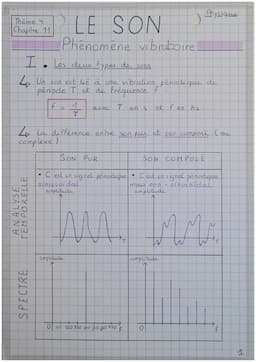 Thème 4
Chapitre 11
Physique
LE SON
Phénomène vibratoire
I. Les deux types de sons
↳ Un son est lié à une vibration périodique de
période T et de fréquence f
f = 1/T avec T en s et f en Hz
↳ La différence entre son pur et son composé (ou
complexe)
SON PUR
SON COMPOSÉ
ANALYSE TEMPORELLE
• C'est un signal périodique
sinusoïdal
amplitude
t
• C'est un signal périodique
mais non-sinusoïdal
amplitude
t
SPECTRE
amplitude
0
f
amplitude
0
f
1